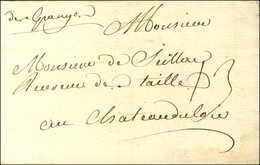 de Granges
Monsieur
Monsieur de Seillac
Receveur de taille 3
au chateaudeloir